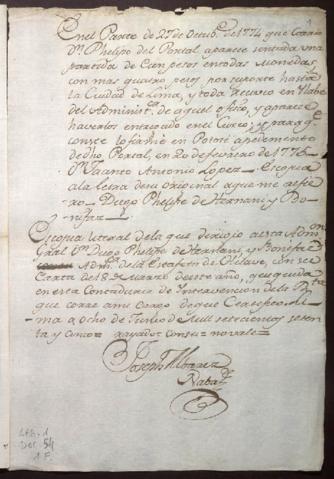 En el Parte de 27 de Octubre de 1774 que corrio
Dn. Phelipe del Portal aparece sentada una
partida de Cien pesos en todas monedas,
con mas quatro pesos por su porte hasta
la Ciudad de Lima, y todo recivo en Nabe
del Administor. de aquel oficio, y aparece
haverlos entregado en el Cuzco; y para qe.
conste lo firmé en Potosi a pedimento
de dho Portal, en 20 de febrero de 1775
Antonio Lopez = Es copia
a la letra de su original a que me refie
ro = Diego Phelipe de Hernani, y Bo-
nifaz =
Es copia literal de la que dirixio a esta Admon.
Gral Dn. Diego Phelipe de Hernani, y Bonifaz
Admor. de la Estafeta de con su
Carta de 18 de Marzo de este año, y que queda
en esta Contaduria de Intervencion de la Rl.
que corre a mi Cargo de que Certifico. Li-
ma a ocho de Junio de mill setecientos seten
ta y cinco = rayado = con su = no vale =
Joseph Alvarez
Nava
Leg-1
Doc 54
1 F.